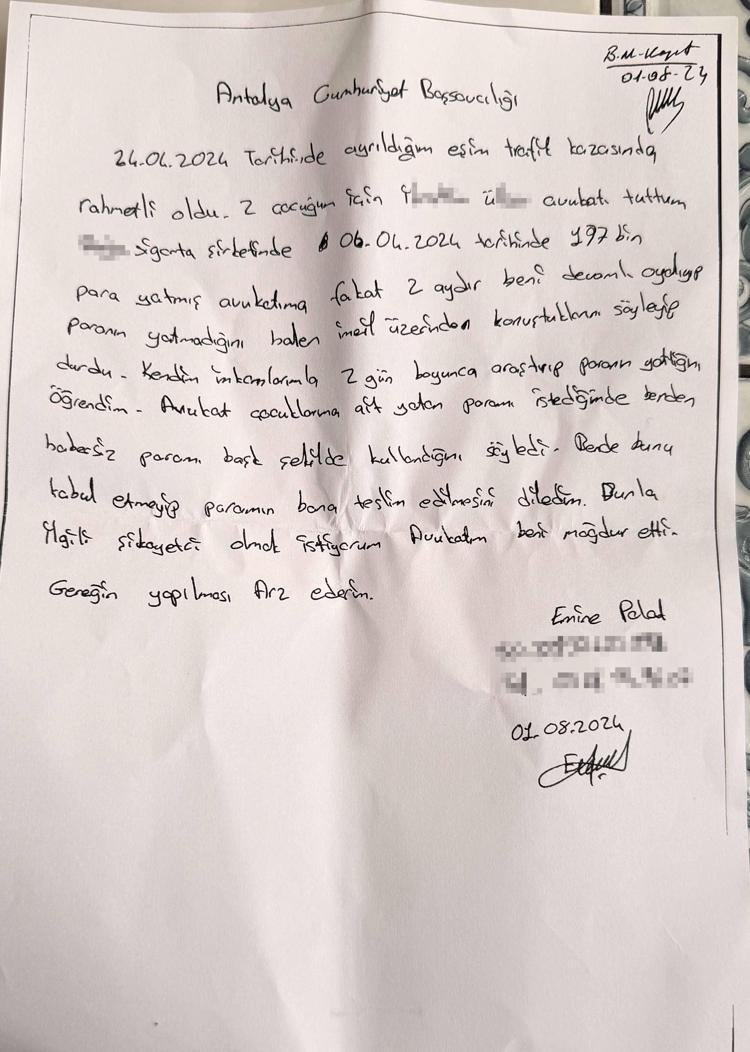 B.M-Kayıt
01-08-24
Antalya Cumhuriyet Başsavcılığı
24.04.2024 Tarihinde ayrıldığım eşim trafik kazasında
rahmetli oldu. 2 çocuğum için avukatı tuttum
sigorta şirketinde 06.04.2024 tarihinde 197 bin
para yatmış avukatıma fakat 2 aydır beni devamlı oyalayıp
paranın yatmadığını halen imeil üzerinden konuştuklarını söyleyip
durdu. Kendim imkanlarımla 2 gün boyunca araştırıp paranın yattığını
öğrendim. Avukat çocuklarıma ait yatan paramı istediğimde benden
habersiz paramı başk şekilde kullandığını söyledi. Bende bunu
kabul etmeyip paramın bana teslim edilmesini diledim. Bunla
ilgili şikayetci olmak istiyorum Avukatım beni mağdur etti.
Gereğin yapılması Arz ederim.
Emine Polat
01.08.2024